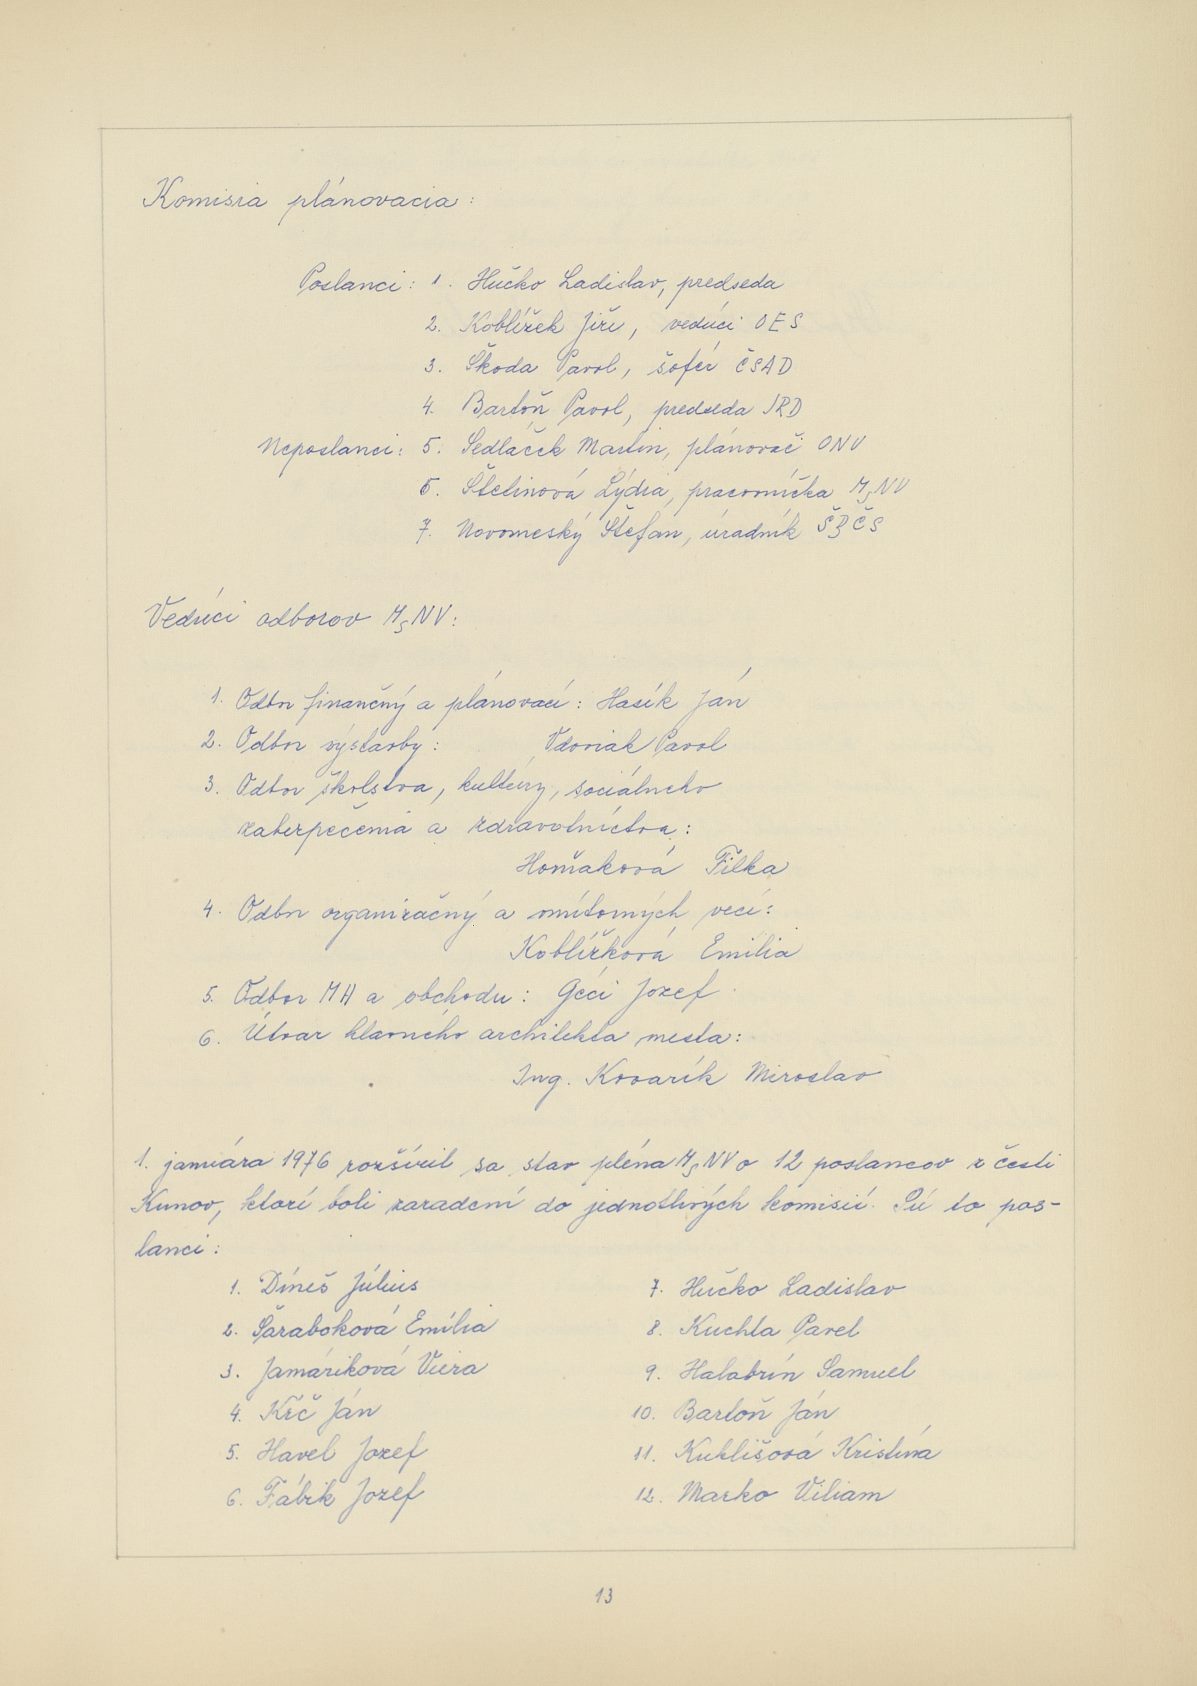 Komisia plánovacia:
Poslanci: 1. Hučko Ladislav, predseda
2. Koblížek Jiři, vedúci OES
3. Škoda Pavol, šofér ČSAD
4. Bartoň Pavol, predseda JRD
Neposlanci: 5. Sedláček Martin, plánovač ONV
6. Štelinová Lýdia, pracovníčka MsNV
7. Novomeský Štefan, úradník ŠBČS
Vedúci odborov MsNV:
1. Odbor finančný a plánovací: Hasík Ján
2. Odbor výstavby: Vdoviak Pavol
3. Odbor školstva, kultúry, sociálneho
zabezpečenia a zdravotníctva:
Horňaková Filka
4. Odbor organizačný a vnútorných vecí:
Koblížková Emília
5. Odbor MH a obchodu: Géci Jozef
6. Útvar hlavného architekta mesta:
Ing. Kovarík Miroslav
1. januára 1976 rozšíril sa stav pléna MsNV o 12 poslancov z česti
Kunov, ktorí boli zaradení do jednotlivých komisií. Sú to pos-
lanci:
1. Díneš Július
2. Šaraboková Emília
3. Jamáriková Viera
4. Kŕč Ján
5. Havel Jozef
6. Fábik Jozef
7. Hučko Ladislav
8. Kuchta Pavel
9. Halabrín Samuel
10. Bartoň Ján
11. Kublišová Kristína
12. Marko Viliam
13